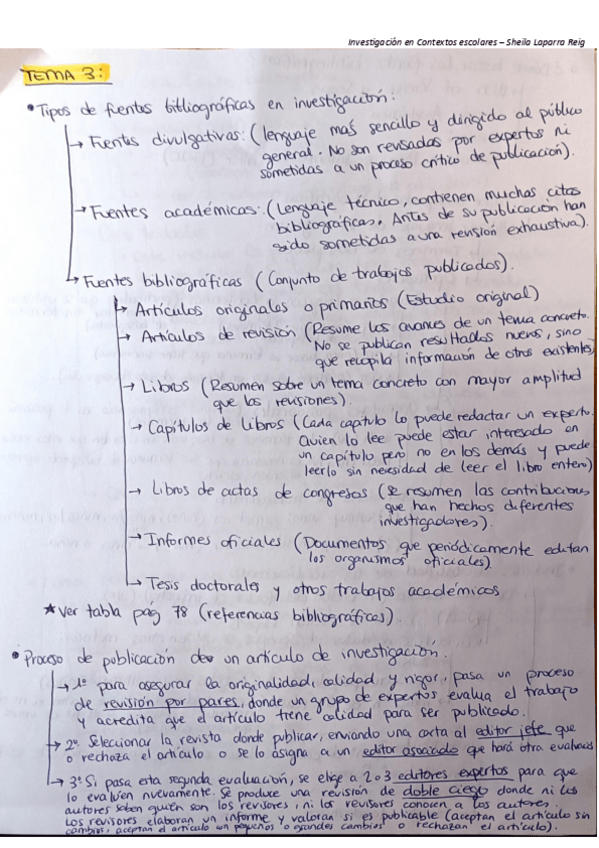 Investigación en Contextos escolares – Sheila Laparra Reig
TEMA 3:
• Tipos de fuentes bibliográficas en investigación:
→ Fuentes divulgativas: (lenguaje más sencillo y dirigido al público
general. No son revisadas por expertos ni
sometidas a un proceso crítico de publicación).
→ Fuentes académicas: (Lenguaje técnico, contienen muchas citas
bibliográficas. Antes de su publicación han
sido sometidas a una revisión exhaustiva).
→ Fuentes bibliográficas (Conjunto de trabajos publicados).
→ Artículos originales o primarios (Estudio original)
→ Artículos de revisión (Resume los avances de un tema concreto.
No se publican resultados nuevos, sino
que recopila información de otros existentes)
→ Libros (Resumen sobre un tema concreto con mayor amplitud
que las revisiones).
→ Capítulos de Libros (Cada capítulo lo puede redactar un experto.
Quien lo lee puede estar interesado en
un capítulo pero no en los demás y puede
leerlo sin necesidad de leer el libro entero)
→ Libros de actas de congresos (se resumen las contribuciones
que han hechos diferentes
investigadores).
→ Informes oficiales (Documentos que periódicamente editan
los organismos oficiales)
→ Tesis doctorales y otros trabajos académicos
★ Ver tabla pag 78 (referencias bibliográficas).
• Proceso de publicación de un artículo de investigación.
→ 1º para asegurar la originalidad, calidad y rigor, pasa un proceso
de revisión por pares, donde un grupo de expertos evalua el trabajo
y acredita que el artículo tiene calidad para ser publicado.
→ 2º Seleccionar la revista donde publicar, enviando una carta al editor jefe que
o rechaza el artículo o se lo asigna a un editor asociado que hará otra evaluación
→ 3º Si pasa esta segunda evaluación, se elige a 2 o 3 editores expertos para que
lo evalúen nuevamente. Se produce una revisión de doble ciego donde ni los
autores saben quién son los revisores, ni los revisores conocen a los autores.
Los revisores elaboran un informe y valoran si es publicable (aceptan el artículo sin
cambios, aceptan el artículo con pequeños o grandes cambios o rechazan el artículo).